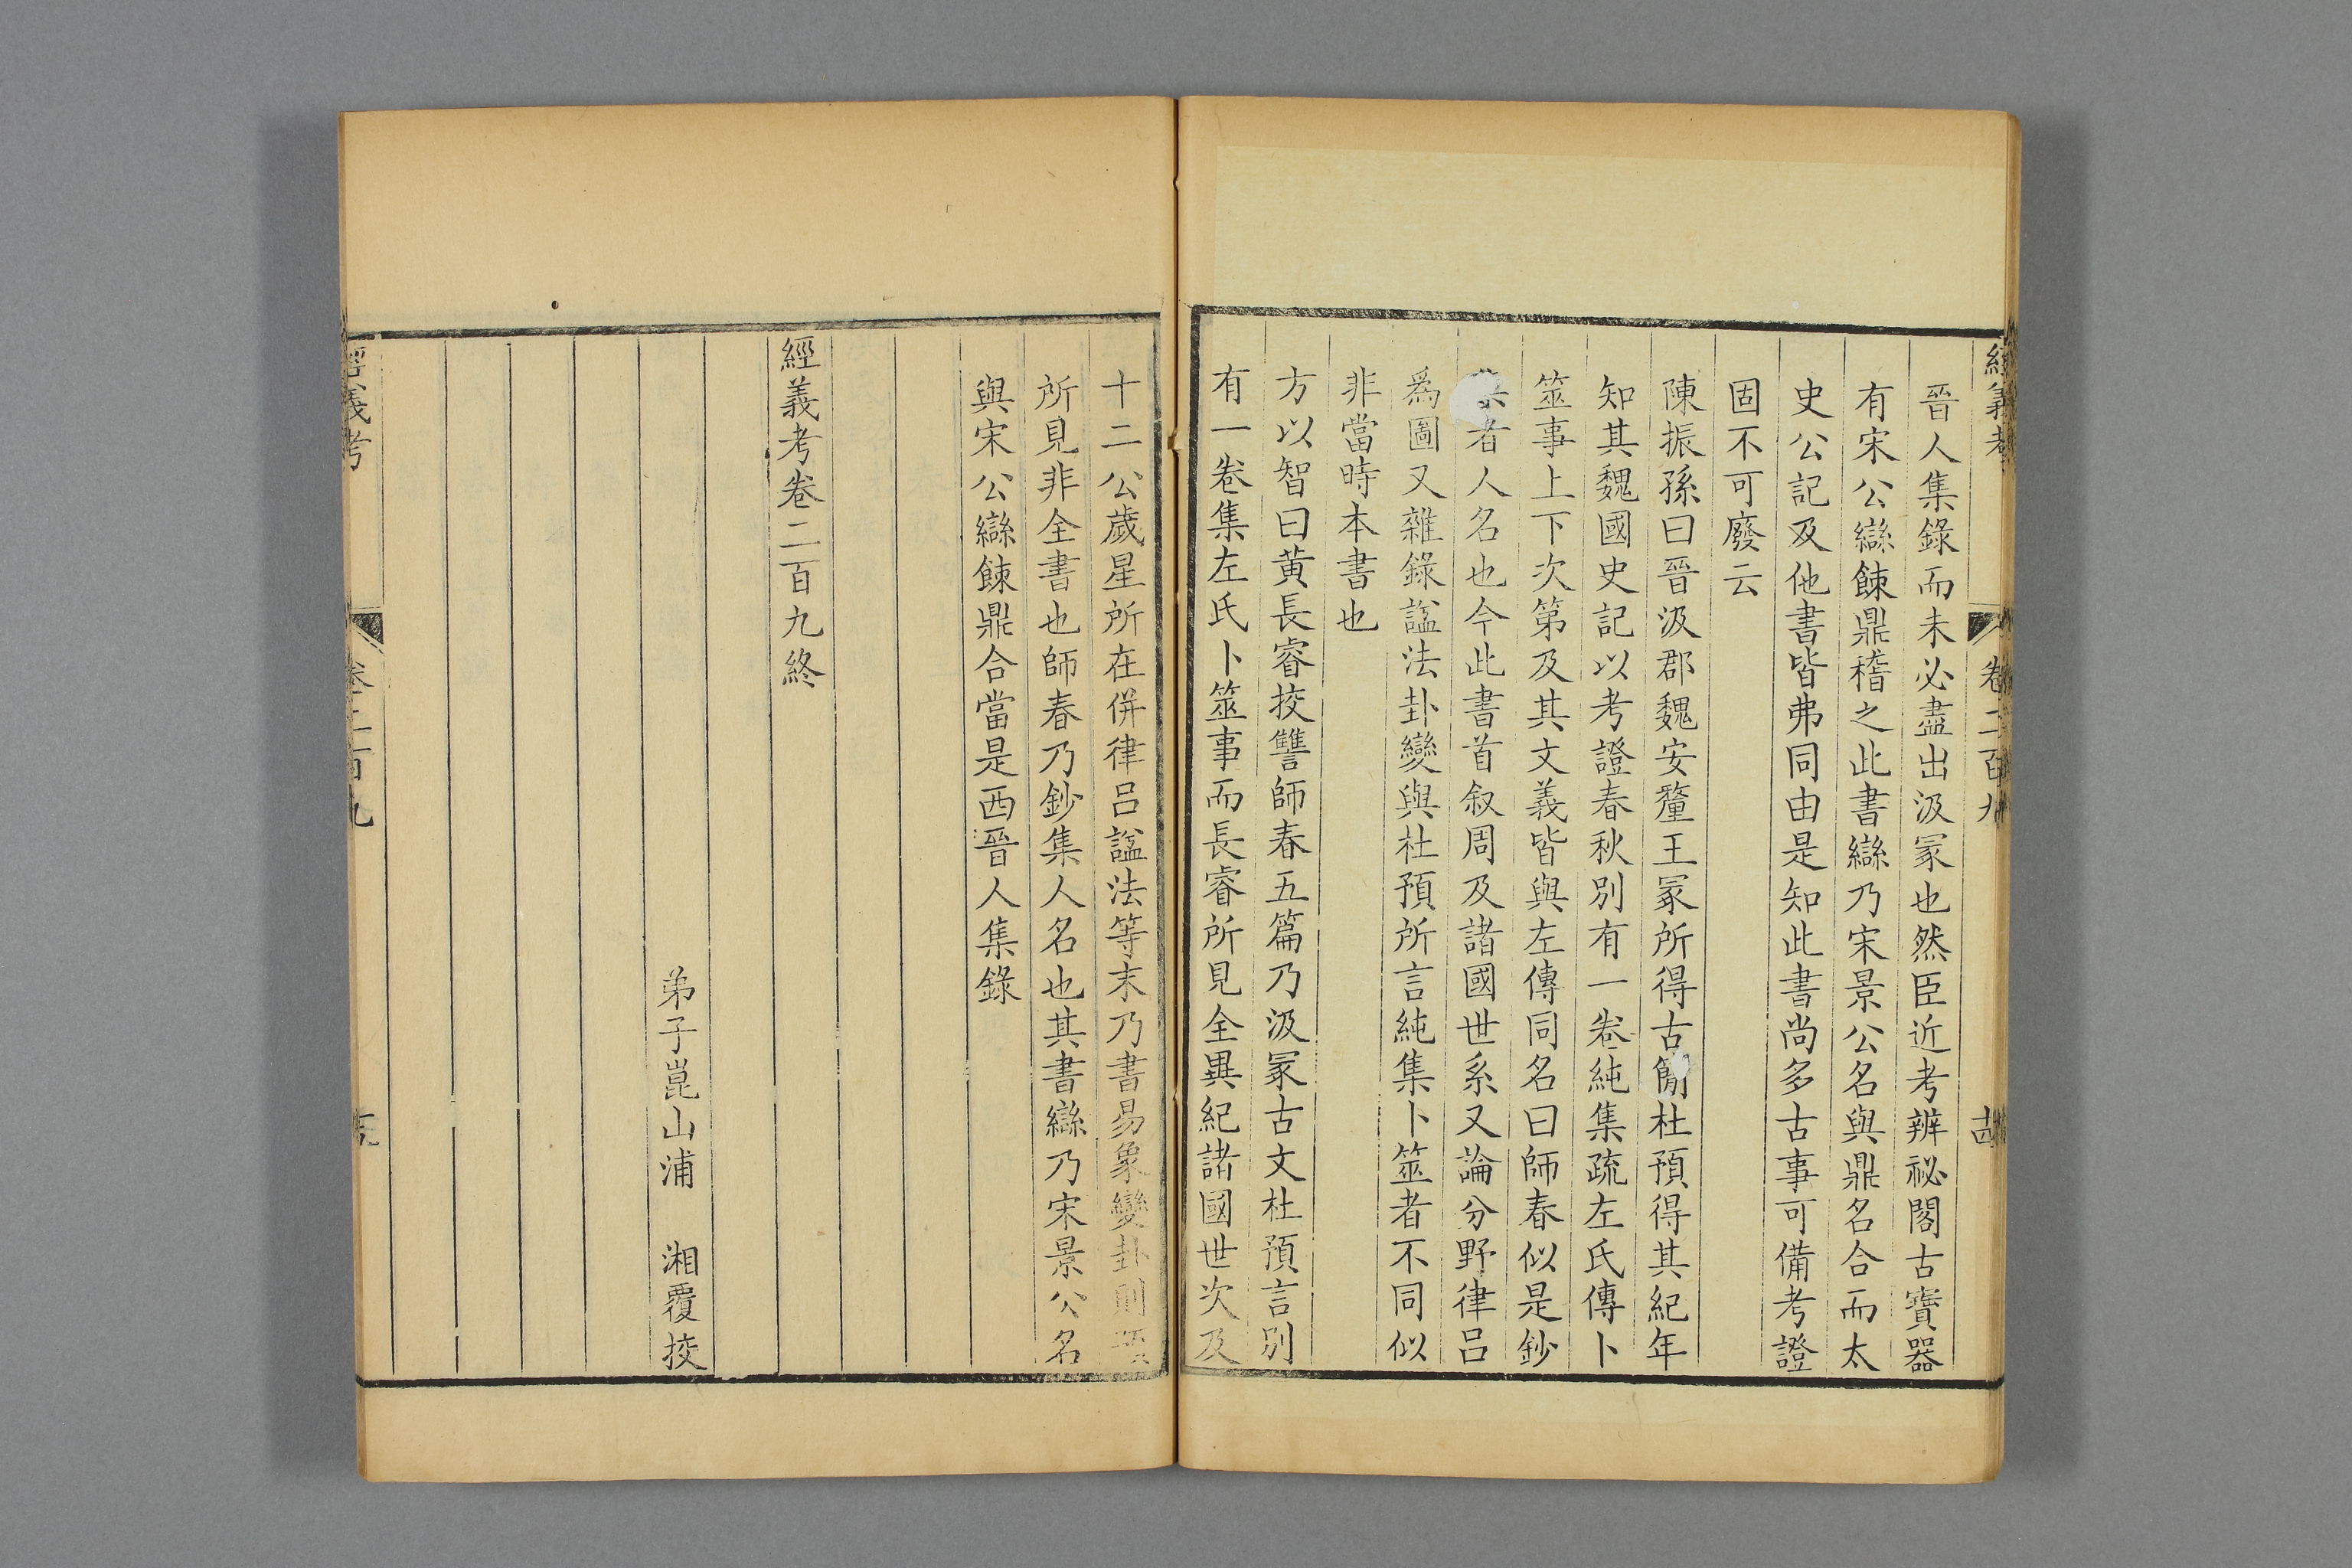 經義考 卷二百九
晉人集錄而未必盡出汲冢也然臣近考辨祕閣古寶器
有宋公䜌餗鼎稽之此書䜌乃宋景公名與鼎名合而太
史公記及他書皆弗同由是知此書尚多古事可備考證
固不可廢云
陳振孫曰晉汲郡魏安釐王冢所得古簡杜預得其紀年
知其魏國史記以考證春秋別有一卷純集疏左氏傳卜
筮事上下次第及其文義皆與左傳同名曰師春似是鈔
者人名也今此書首叙周及諸國世系又論分野律呂
爲圖又雜錄諡法卦變與杜預所言純集卜筮者不同似
非當時本書也
方以智曰黄長睿挍讐師春五篇乃汲冢古文杜預言別
有一卷集左氏卜筮事而長睿所見全異紀諸國世次及
十二公歲星所在併律呂諡法等末乃書易象變卦則
所見非全書也師春乃鈔集人名也其書䜌乃宋景公名
與宋公䜌餗鼎合當是西晉人集錄
經義考卷二百九終
弟子崑山浦 湘覆挍
經義考 卷二百九